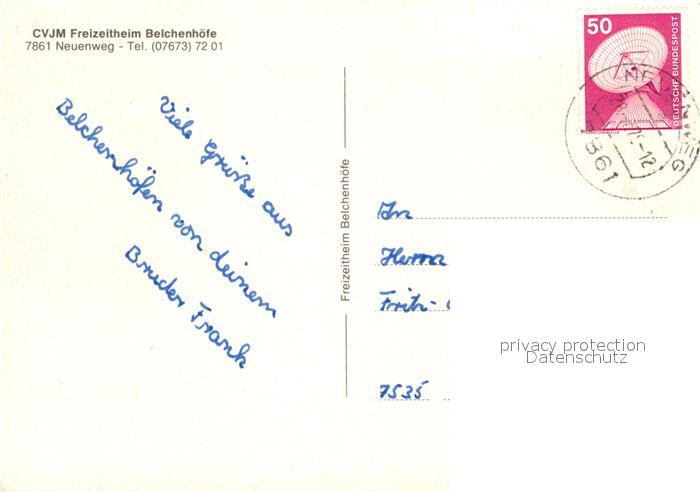 CVJM Freizeitheim Belchenhöfe
7861 Neuenweg - Tel. (07673) 72 01
Viele Grüße aus
Belchenhöfen von deinem
Bruder Frank
Freizeitheim Belchenhöfe
50
DEUTSCHE BUNDESPOST
NEUENWEG
7861
An
Herrn
Fritz-
7535
privacy protection
Datenschutz